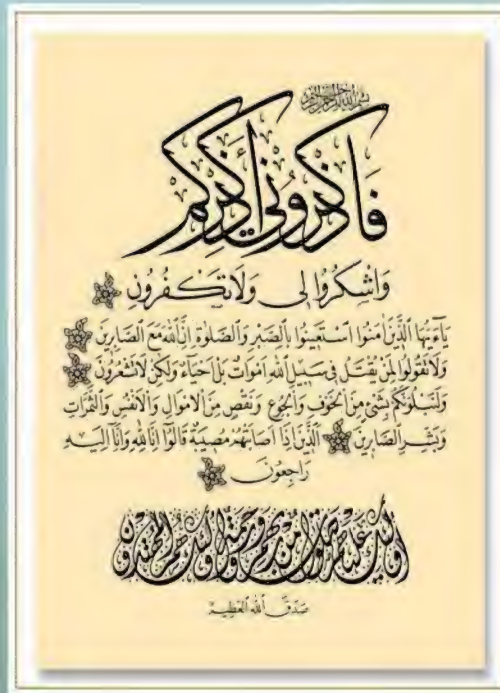 بسم الله الرحمن الرحيم
فَاذْكُرُونِي أَذْكُرْكُمْ
وَاشْكُرُوا لِي وَلَا تَكْفُرُونِ
يَاأَيُّهَا الَّذِينَ اٰمَنُوا اسْتَعِينُوا بِالصَّبْرِ وَالصَّلٰوةِ اِنَّ اللهَ مَعَ الصَّابِرِينَ
وَلَا تَقُولُوا لِمَنْ يُقْتَلُ فِي سَبِيلِ اللهِ اَمْوَاتٌ بَلْ اَحْيَاءٌ وَلٰكِنْ لَا تَشْعُرُونَ
وَلَنَبْلُوَنَّكُمْ بِشَيْءٍ مِنَ الْخَوْفِ وَالْجُوعِ وَنَقْصٍ مِنَ الْاَمْوَالِ وَالْاَنْفُسِ وَالثَّمَرَاتِ
وَبَشِّرِ الصَّابِرِينَ الَّذِينَ اِذَا اَصَابَتْهُمْ مُصِيبَةٌ قَالُوا اِنَّا لِلهِ وَاِنَّا اِلَيْهِ
رَاجِعُونَ
أُولٰئِكَ عَلَيْهِمْ صَلَوَاتٌ مِنْ رَبِّهِمْ وَرَحْمَةٌ وَأُولٰئِكَ هُمُ الْمُهْتَدُونَ
صَدَقَ اللهُ الْعَظِيمُ